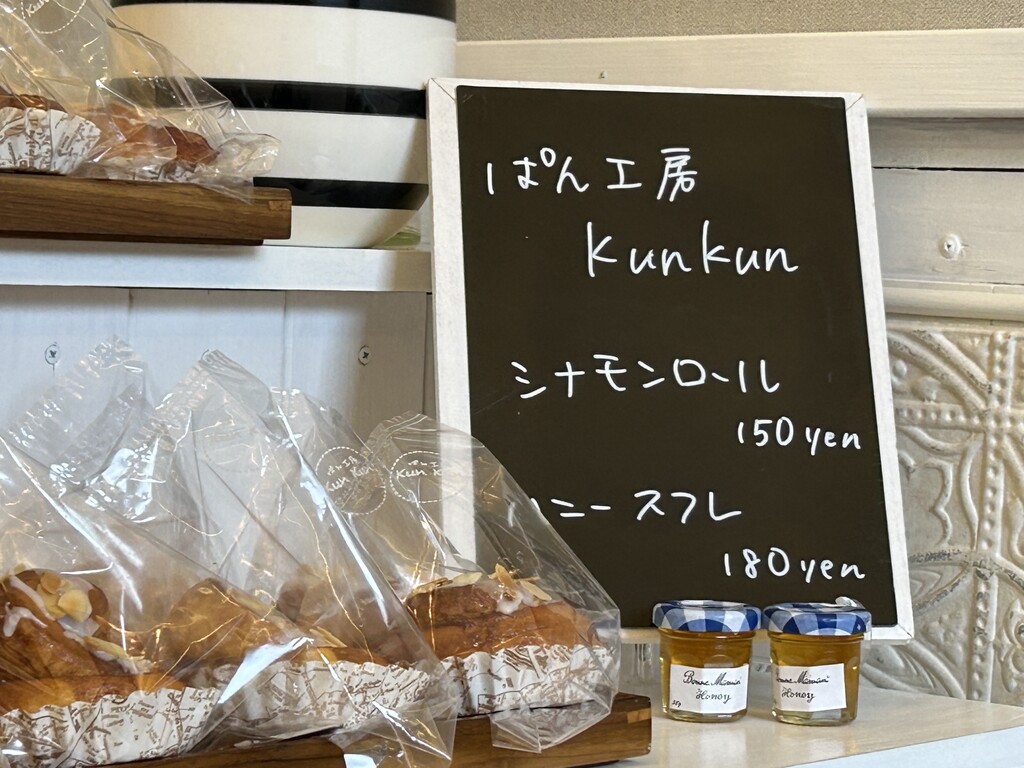 ぱん工房
kunkun
シナモンロール
150yen
ニースフレ
180yen
Kun Kun
Kun Kun
Bonne Maman
Honey
Bonne Maman
Honey